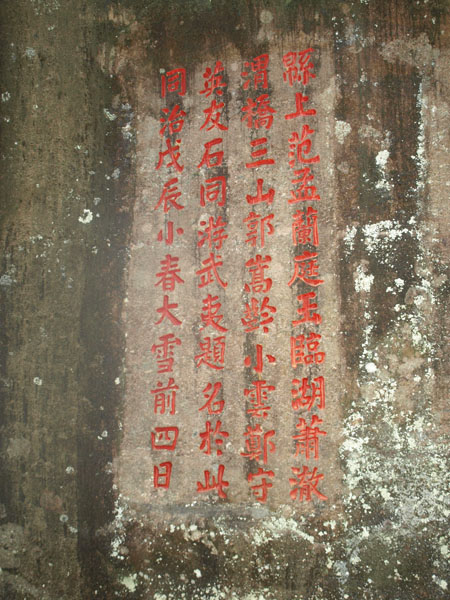 縣上范孟蘭庭玉臨湖蕭澈
渭橋三山郭嵩齡小雲鄭守
英友石同游武夷題名於此
同治戊辰小春大雪前四日